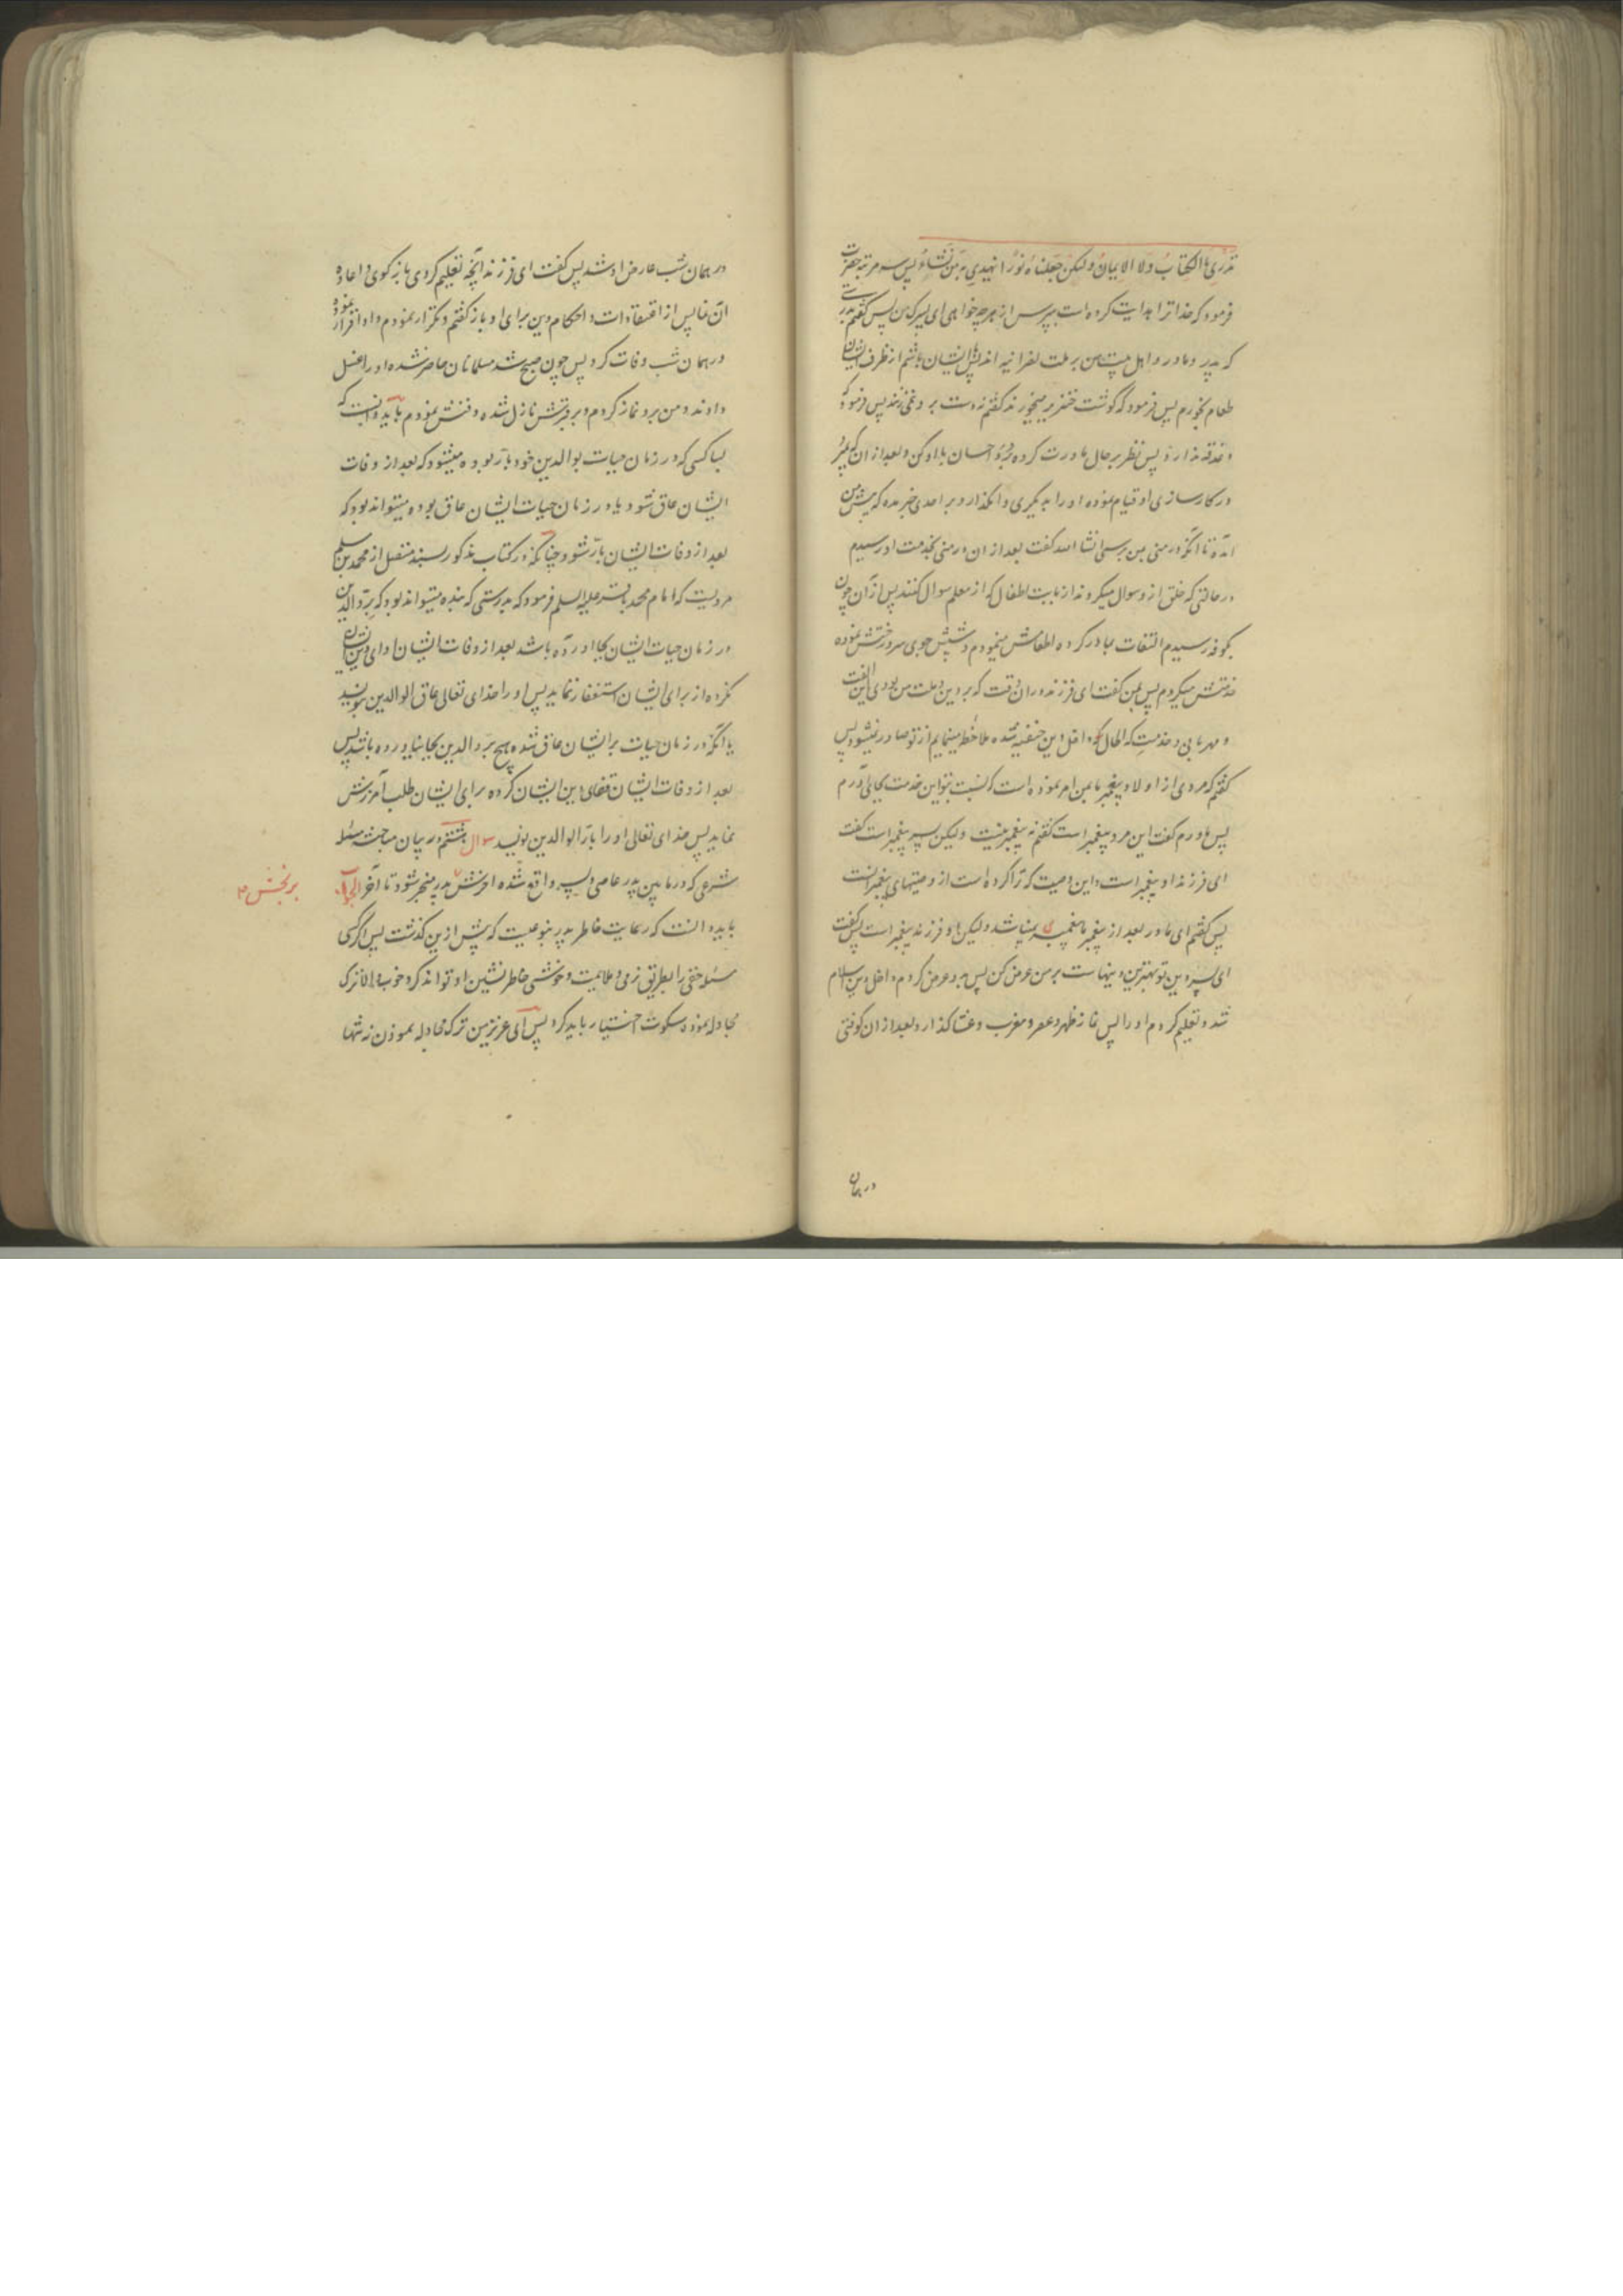 تدری ما الکتاب ولا الایمان ولکن جعلناه نورا نهدی به من نشاء پس سه مرتبه حضرت
فرمود که خدا ترا هدایت کرده است بپرس از هرچه خواهی ای پسرک من پس گفتم
که پدر و مادر و اهل بیت من بر ملت نصرانیه اند با ایشان باشم از ظرف ایشان
طعام بخورم پس فرمود که گوشت خنزیر میخورند گفتم نه دست بر و نمی زنند پس فرمود که
دغدغه ندارد پس نظر بر حال مادرت کرده احسان با او کن و بعد از آن که بمیرد
در کارسازی او قیام نموده او را به دیگری وامگذار و بر احدی خبر مده که پیش من
آمده تا آنکه در منی بمن برسی انشا الله گفت بعد از ان در منی بخدمت او رسیدم
در حالتی که خلق از و سوال میکردند از بابت اطفال که از معلم سوال کنند پس از آن چون
بکوفه رسیدم التفات بمادر کرده اطعامش مینمودم و شپش جوی سر و رختش نموده
خدمتش میکردم پس بمن گفت ای فرزند در ان وقت که بر دین و ملت من بودی این الفت
و مهربانی و خدمت که الحال که داخل دین حنفیه شده ملاحظه مینمایم از تو صادر نمیشود پس
گفتم که مردی از اولاد پیغمبر ما بمن امر نموده است که نسبت بتو این خدمت بجای آورم
پس مادرم گفت این مرد پیغمبر است گفتم نه پیغمبر نیست ولیکن پسر پیغمبر است گفت
ای فرزند او پیغمبر است و این وصیت که ترا کرده است از وصیتهای پیغمبرانست
پس گفتم ای مادر بعد از پیغمبر ما پیغمبری نمیباشد ولیکن او فرزند پیغمبر است پس گفت
ای پسر دین تو بهترین دینهاست بر من عرض کن پس برو عرض کردم داخل دین اسلام
شد و تعلیم کردم او را پس نماز ظهر و عصر و مغرب و عشا گذارد و بعد از ان کوفتی
در همان
در همان شب عارض او شد پس گفت ای فرزند آنچه تعلیم کردی باز کوی و اعاده
آن نما پس از اعتقادات و احکام دین برای او باز گفتم و تکرار نمودم و او اقرار نمود
در همان شب وفات کرد پس چون صبح شد مسلمانان حاضر شده او را غسل
دادند و من برو نماز کردم و بر قبرش نازل شده دفنش نمودم باید دانست که
بسا کسی که در زمان حیات بوالدین خود بارّ بوده میشود که بعد از وفات
ایشان عاق شود و یا در زمان حیات ایشان عاق بوده میتواند بود که
بعد از وفات ایشان بارّ شود چنانکه در کتاب مذکور بسند متصل از محمد بن مسلم
مرویست که امام محمد باقر علیه السلم فرمود که بدرستی که بنده میتواند بود که برّ والدین
در زمان حیات ایشان بجا آورده باشد بعد از وفات ایشان ادای دین ایشان
نکرده از برای ایشان استغفار ننماید پس او را خدای تعالی عاق الوالدین نویسد
یا آنکه در زمان حیات بر ایشان عاق شده هیچ برّ والدین بجا نیاورده باشد پس
بعد از وفات ایشان قضای دین ایشان کرده برای ایشان طلب آمرزش
نماید پس خدای تعالی او را بارّ الوالدین نویسد سوال هشتم در بیان مباحثه مسئله
شرعی که در ما بین پدر عاصی و پسر واقع شده آخرش برنجش پدر منجر شود تا آخر الجواب
باید دانست که رعایت خاطر پدر بنوعیست که پیش ازین گذشت پس اگر کسی
مسئله حقی را بطریق نرمی و ملایمت و خوشی خاطر نشین او تواند کرد خوب والا ترک
مجادله نموده سکوت اختیار باید کرد پس ای عزیز من ترک مجادله نمودن نه تنها
برنجش